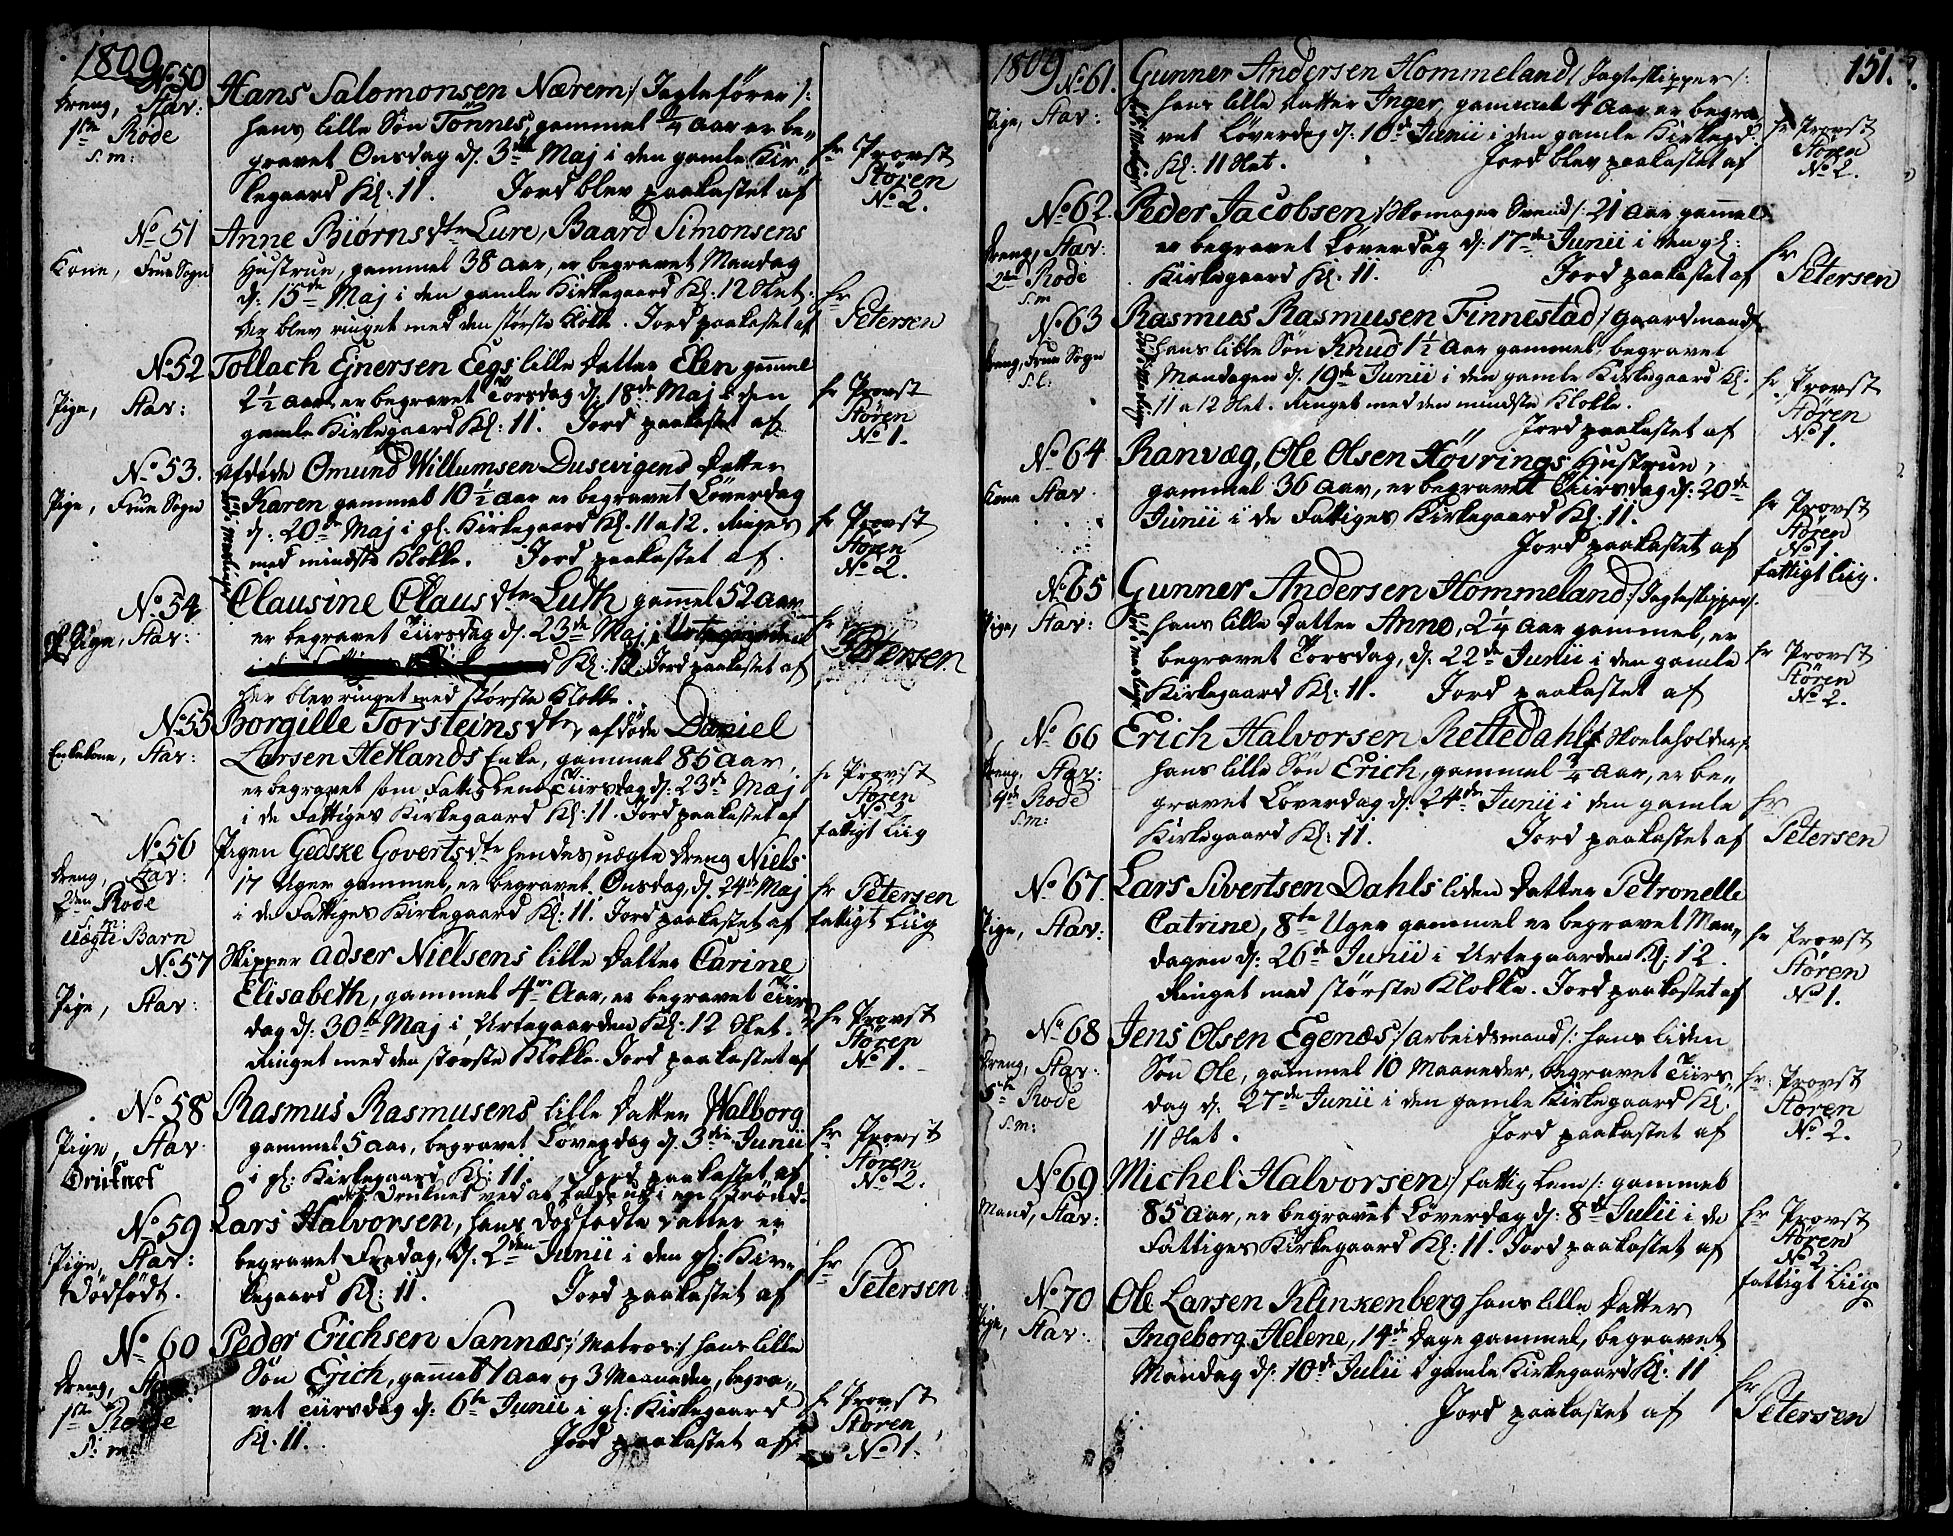 1809.
No 50
Dreng, Stav:
1ste Rode
S:m:
Hans Salomonsen Nærem /: Jagtefører :/
hans lille Søn Tönnes, gammel ¼ Aar er be„
gravet Onsdag d: 3de Maj i den gamle Kir„
kegaard Kl: 11. Jord blev paakastet af
hr Provst
Støren
No 2.
No 51
Kone, Frue Sogn
Anne Biørns dtr Lure, Baard Simonsens
Hustrue, gammel 38 Aar, er begravet Mandag
d: 15de Maj i den gamle Kirkegaard Kl: 12 Slet:
Der blev ringet med den største Klokke. Jord paakastet af
hr
Petersen
No 52
Pige, Stav:
Tollach Ejnersen Eegs lille Datter Elen gammel
2½ Aar er begravet Torsdag d: 18de Maj i den
gamle Kirkegaard Kl: 11. Jord paakastet af
hr Provst
Støren
No 1.
No 53.
Pige, Frue Sogn
Afdøde Omund Willumsen Dusevigens Datter
Karen gammel 10½ Aar er begravet Löverdag
d: 20de Maj i gl: Kirkegaard Kl: 11 a 12. Ringet
med mindste Klokke. Jord paakastet af
hr Provst
Støren
No 2.
No 54
Pige, Stav:
Clausine Claus dtr Luth gammel 52 Aar
er begravet Tiirsdag d: 23de Maj i Urtegaarden
Kl: 12. Jord paakastet af
Der blev ringet med største Klokke.
hr
Petersen
No 55
Enkekone, Stav:
Borgille Torsteins dtr, afdøde Daniel
Larsen Hetlands Enke, gammel 85 Aar,
er begravet som Fattiglem Tiirsdag d: 23de Maj
i de Fattiges Kirkegaard Kl: 11. Jord paakastet af
hr Provst
Støren
No 2
fattigt Liig
No 56
Dreng, Stav:
2den Rode
Uægte Barn
Pigen Gedske Goverts dtr hendes uægte Dreng Niels
17 Uger gammel, er begravet Onsdag, d. 24de Maj
i de Fattiges Kirkegaard Kl: 11. Jord paakastet af
hr Petersen
fattigt Liig
No 57
Pige, Stav:
Skipper Adser Nielsens lille Datter Carine
Elisabeth, gammel 4re Aar, er begravet Tiirs
dag d: 30te Maj i Urtegaarden Kl: 12 Slet.
Ringet med den største Klokke. Jord paakastet af
hr Provst
Støren
No 1.
No 58
Pige, Stav
Druknet
Rasmus Rasmusens lille Datter Walborg
gammel 5 Aar, begravet Löverdag d. 3die Junii
i gl: Kirkegaard Kl: 11. Jord paakastet af
Druknet ved at falde ud i
hr Provst
Støren
No 2.
No 59
Pige, Stav:
Dödfödt.
Lars Halvorsen, hans dödfödte Datter er
begravet Fredag, d: 2den Junii i den gl: Kir„
kegaard Kl: 11. Jord paakastet af
hr
Petersen
No 60
Dreng, Stav
1ste Rode
S: m:
Peder Erichsen Sannæs /: Matros :/ hans lille
Søn Erich, gammel 1 Aar og 3 Maaneder, begra„
vet Tiirsdag d: 6te Junii i gl: Kirkegaard
Kl: 11. Jord paakastet af
hr Provst
Støren
No 1.
1809
151.
No 61.
Pige, Stav:
Gunner Andersen Hommeland /: Jagteskipper :/
hans lille Datter Inger, gammel 4 Aar er begra„
vet Löverdag d: 10de Junii i den gamle Kirkegd:
Kl: 11 Slet. Jord blev paakastet af
hr Provst
Støren
No 2.
No 62.
Dreng, Stav:
2den Rode
S:m
Peder Jacobsen /: Skomager Svend :/ 21 Aar gammel
er begravet Löverdag d: 17de Junii i den gl:
Kirkegaard Kl: 11. Jord paakastet af
hr
Petersen
No 63
Dreng, Frue Sogn
S:l:
Rasmus Rasmusen Finnestad /: Gaardmand
hans lille Søn Knud 1½ Aar gammel, begravet
Mandagen d: 19de Junii i den gamle Kirkegaard Kl.
11 a 12 Slet. Ringet med den mindste Klokke.
Jord paakastet af
hr Provst
Støren
No 1.
No 64
Kone Stav
Ranvæg, Ole Olsen Høvrings Hustrue,
gammel 36 Aar, er begravet Tiirsdag d: 20de
Junii i de Fattiges Kirkegaard Kl: 11.
Jord paakastet af
hr Provst
Støren
No 1.
fattigt Liig.
No 65
Pige, Stav:
Gunner Andersen Hommeland /: Jagteskipper :/
hans lille Datter Anne, 2¼ Aar gammel, er
begravet Torsdag, d: 22de Junii i den gamle
Kirkegaard Kl: 11. Jord paakastet af
hr Provst
Støren
No 2.
No 66
Dreng, Stav:
4de Rode
S:m:
Erich Halvorsen Rettedahl /: Skoleholder :/
hans lille Søn Erich, gammel ¾ Aar, er be„
gravet Löverdag d: 24de Junii i den gamle
Kirkegaard Kl: 11. Jord paakastet af
hr
Petersen
No 67.
Pige, Stav:
Lars Sivertsen Dahls liden Datter Petronelle
Catrine, 8te Uger gammel er begravet Man„
dagen d: 26de Junii i Urtegaarden Kl: 12.
Ringet med største Klokke. Jord paakastet af
hr Provst
Støren
No 1.
No 68
Dreng, Stav:
8te Rode
S:m:
Jens Olsen Egenæs /: Arbeidsmand :/ hans liden
Søn Ole, gammel 10 Maaneder, begravet Tiirs„
dag d: 27de Junii i den gamle Kirkegaard Kl.
11 Slet. Jord paakastet af
hr: Provst
Støren
No 2.
No 69
Mand, Stav:
Michel Halvorsen /: fattig Lem :/ gammel
85 Aar, er begravet Löverdag d: 8de Julii i de
Fattiges Kirkegaard Kl: 11. Jord paakastet af
hr Provst
Støren
No 2
fattigt Liig
No 70
Pige, Stav:
Ole Larsen Klinkenberg hans lille Datter
Ingeborg Helene, 14 Dage gammel, begravet
Mandag d: 10de Julii i gamle Kirkegaard Kl: 11
Jord paakastet af
hr
Petersen